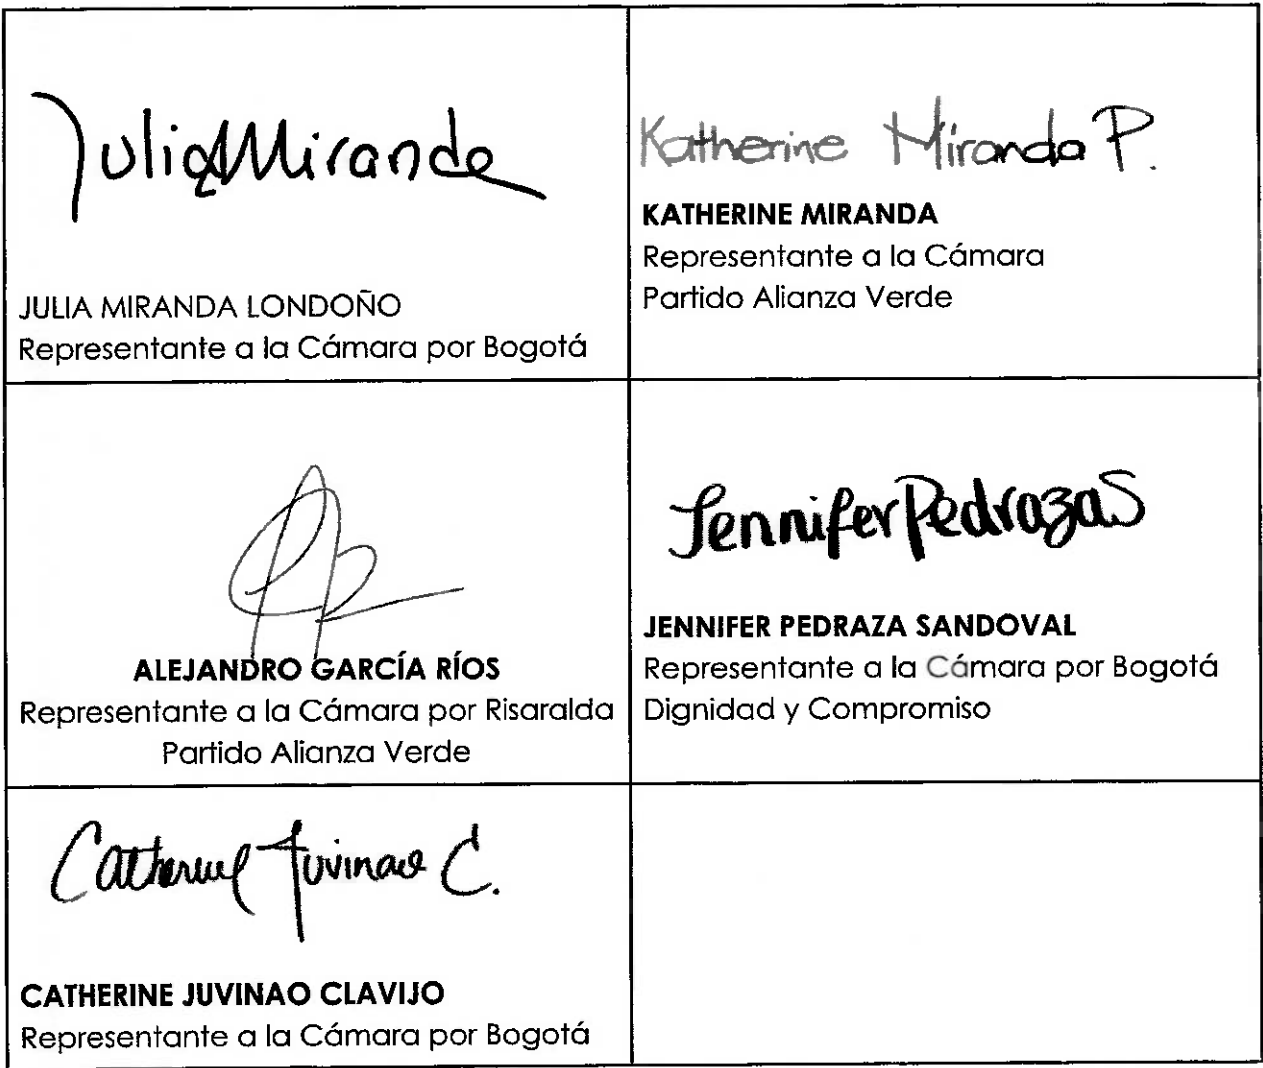 Julia Miranda
JULIA MIRANDA LONDOÑO
Representante a la Cámara por Bogotá
Katherine Miranda P.
KATHERINE MIRANDA
Representante a la Cámara
Partido Alianza Verde
ALEJANDRO GARCÍA RÍOS
Representante a la Cámara por Risaralda
Partido Alianza Verde
Jennifer Pedraza S
JENNIFER PEDRAZA SANDOVAL
Representante a la Cámara por Bogotá
Dignidad y Compromiso
Catherine Juvinao C.
CATHERINE JUVINAO CLAVIJO
Representante a la Cámara por Bogotá